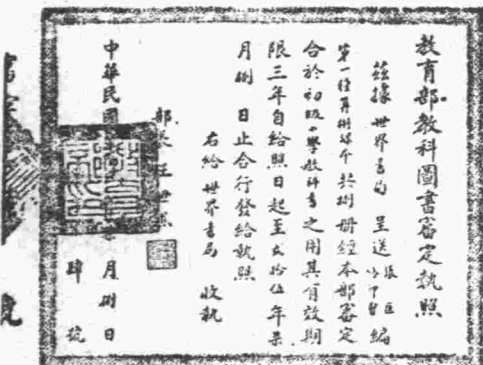 教育部教科圖書審定執照
茲據世界書局呈送張 編
第一種算術課本 共捌冊經本部審定
合於初級小學教科書之用其有效期
限三年自給照日起至 拾伍年
月捌日止合行發給執照
右給世界書局 收執
部長
中華民國 月捌日
肆 號
號